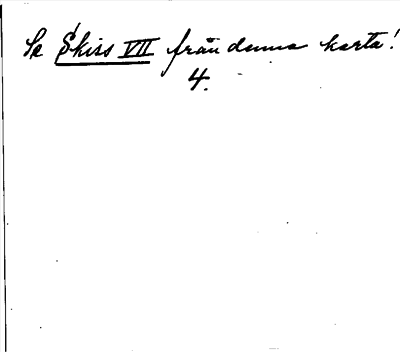 Se Skirs VII från denna karta!
4.